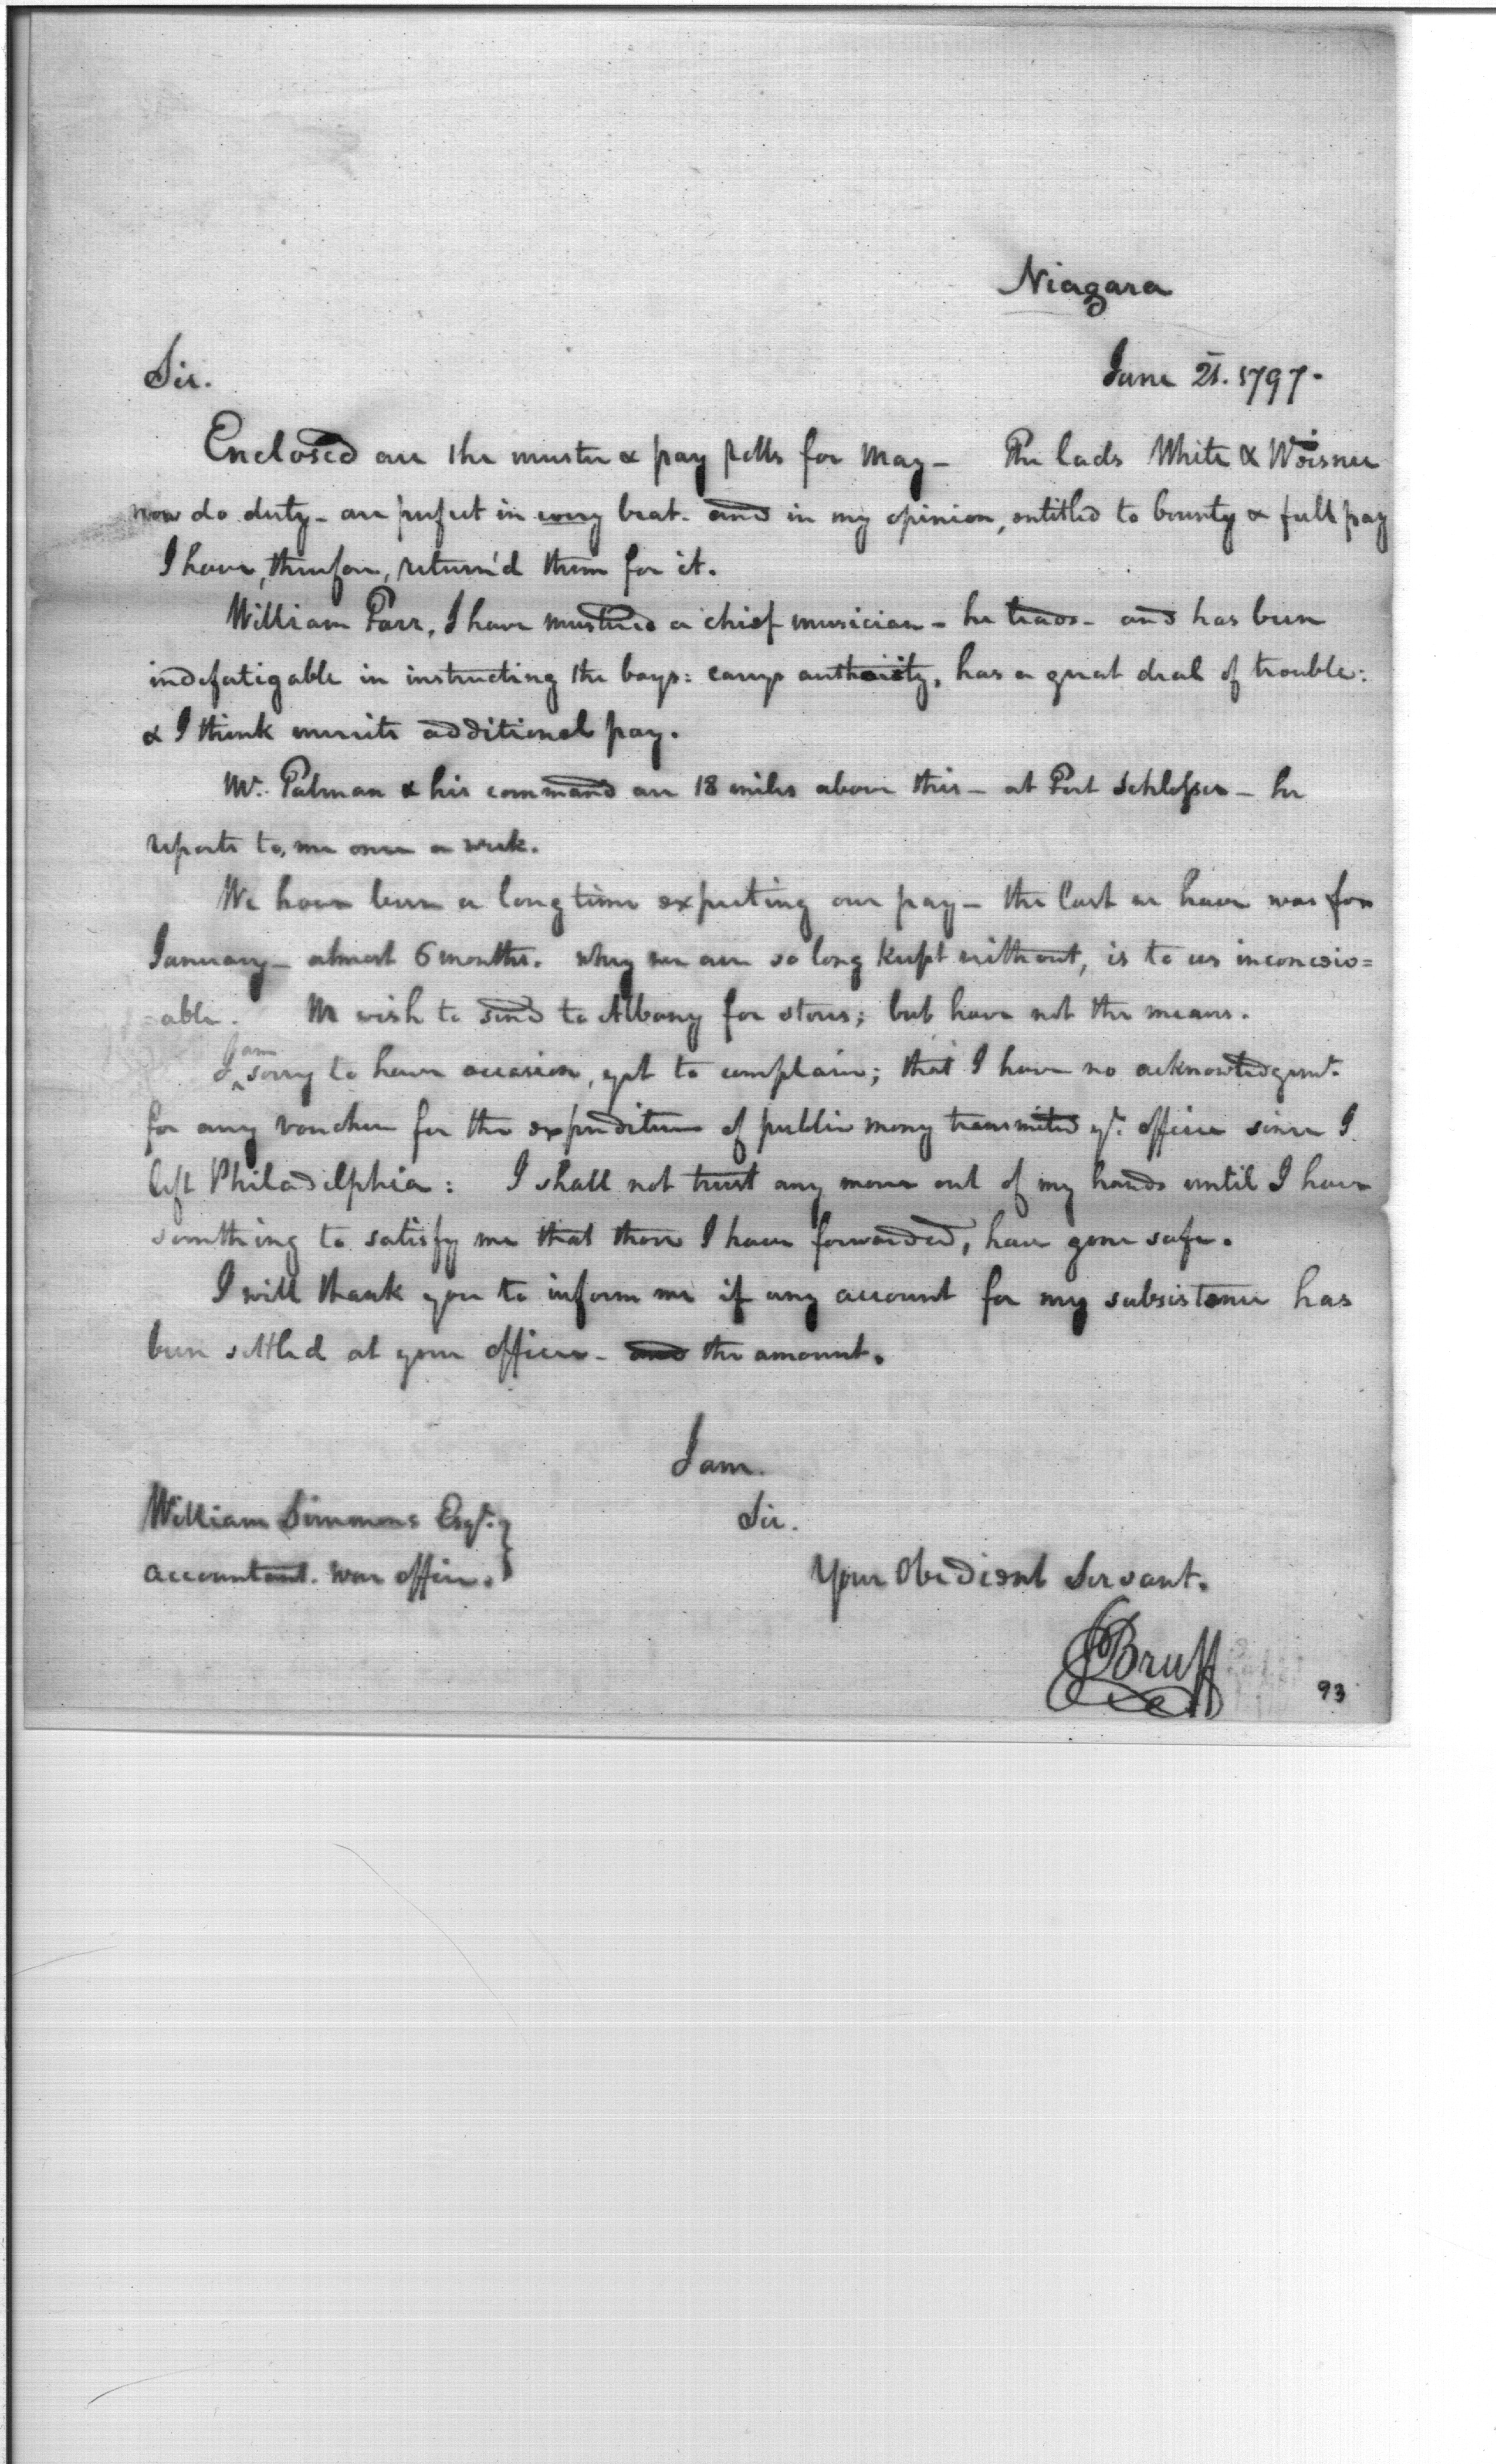 Niagara
Sir.
June 21. 1797.
Enclosed are the muster & pay rolls for May — The lads White & Woisner
now do duty — are perfect in every beat. and in my opinion, entitled to bounty & full pay
I have, therefore, return'd them for it.
William Parr, I have mustered a chief musician — he leads — and has been
indefatigable in instructing the boys: carrys authority, has a great deal of trouble:
& I think merits additional pay.
Mr. Patman & his command are 18 miles above this — at Fort Schlosser — he
reports to, me once a week.
We have been a long time expecting our pay — the last we have was for
January — almost 6 months. why we are so long kept without, is to us inconceiv=
-able. We wish to send to Albany for stores; but have not the means.
I am sorry to have occasion, yet to complain; that I have no acknowledgemt.
for any voucher for the expenditure of public money transmitted yr. office since I
left Philadelphia: I shall not trust any more out of my hands until I have
something to satisfy me that those I have forwarded, have gone safe.
I will thank you to inform me if any account for my subsistence has
been settled at your office — and the amount.
I am.
Sir.
Your Obedient Servant.
William Simmons Esqr.
accountant. war office.
J Bruff
93